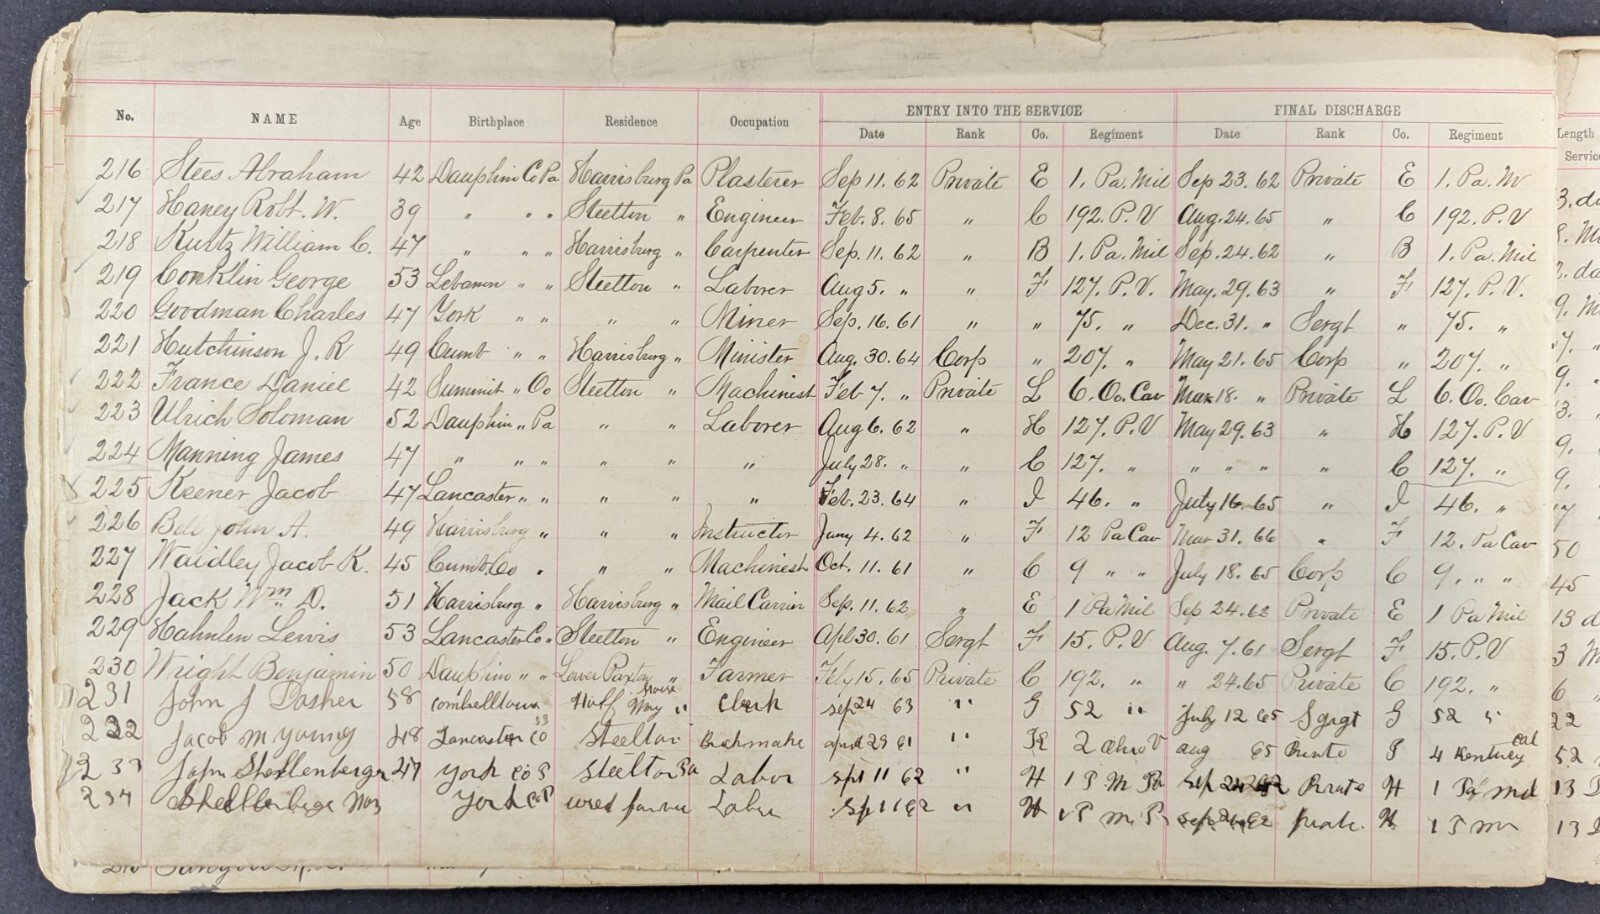 ENTRY INTO THE SERVICE FINAL DISCHARGE Length
No. NAME Age Birthplace Residence Occupation Date Rank Co. Regiment Date Rank Co. Regiment Service
216 Stees Abraham 42 Dauphin Co Pa Harrisburg Pa Plasterer Sep 11. 62 Private E 1. Pa. Mil Sep 23. 62 Private E 1. Pa. M 3. da
217 Haney Robt. W. 39 " " " Steelton " Engineer Feb. 8. 65 " C 192. P. V Aug. 24. 65 " C 192. P. V
218 Kurtz William C. 47 " " " Harrisburg " Carpenter Sep. 11. 62 " B 1. Pa. Mil Sep. 24. 62 " B 1. Pa. Mil
219 Conklin George 53 Lebanon " " Steelton " Laborer Aug 5. " " F 127. P. V. May. 29. 63 " F 127. P. V.
220 Goodman Charles 47 York " " " " Miner Sep. 16. 61 " " 75. " Dec. 31. " Sergt " 75. "
221 Hutchinson J. R 49 Cumb " " Harrisburg " Minister Aug. 30. 64 Corp " 207. " May 21. 65 Corp " 207. "
222 France Daniel 42 Summit " Oo Steelton " Machinest Feb 7. " Private L 6. Oo. Cav Mar 18. " Private L 6. Oo. Cav
223 Ulrich Soloman 52 Dauphin " Pa " " Laborer Aug 6. 62 " H 127. P. V May 29. 63 " H 127. P. V
224 Manning James 47 " " " " " " July 28. " " C 127. " " " " " C 127. "
225 Keener Jacob 47 Lancaster " " " " " Feb. 23. 64 " I 46. " July 16. 65 " I 46. "
226 Bell John A. 49 Harrisburg " " " Instructor 4. 62 " F 12 Pa Cav Mar 31. 66 " F 12. Pa Cav 50
227 Waidley Jacob K. 45 Cumb. Co " " " Machinest Oct. 11. 61 " C 9 " " July 18. 65 Corp C 9. " " 45
228 Jack Wm D. 51 Harrisburg " Harrisburg " Mail Carrier Sep. 11. 62 " E 1 Pa Mil Sep 24. 62 Private E 1 Pa Mil 13 d
229 Hahnlen Lewis 53 Lancaster Co " Steelton " Engineer Apl 30. 61 Sergt F 15. P. V Aug. 7. 61 Sergt F 15. P. V 3 M
230 Wright Benjamin 50 Dauphin " " Lower Paxton " Farmer Feb 15. 65 Private C 192. " " 24. 65 Private C 192. " 6 "
231 John J Dasher 58 combelltown Half Way House " Clerk sep 24 63 " G 52 " July 12 65 G 52 " 22
232 Jacob m young 48 Lancaster co Steelton 29 61 " K 2 Ohio V aug 65 4 Kentucky cal 52
233 John Shellenberger 47 York co P Steelton Pa Labor sept 11 62 " H 1 P M Pa sep Private H 1 Pa md 13
234 Shellenberger York co P Labor sep 11 62 " H 1 P m P H 1 P m 13